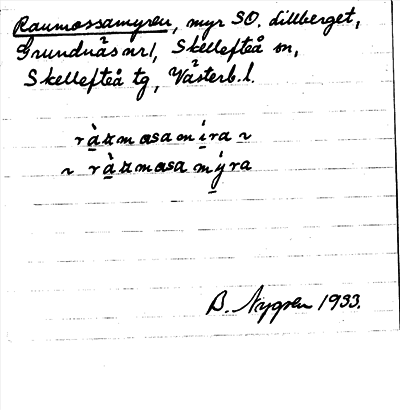 Raumossamyren, myr SO. Lillberget,
Grundnäs nr 1, Skellefteå sn,
Skellefteå tg, Västerb. l.
ràumosamíra ~
~ ràumosamýra
B. Nygren 1933.